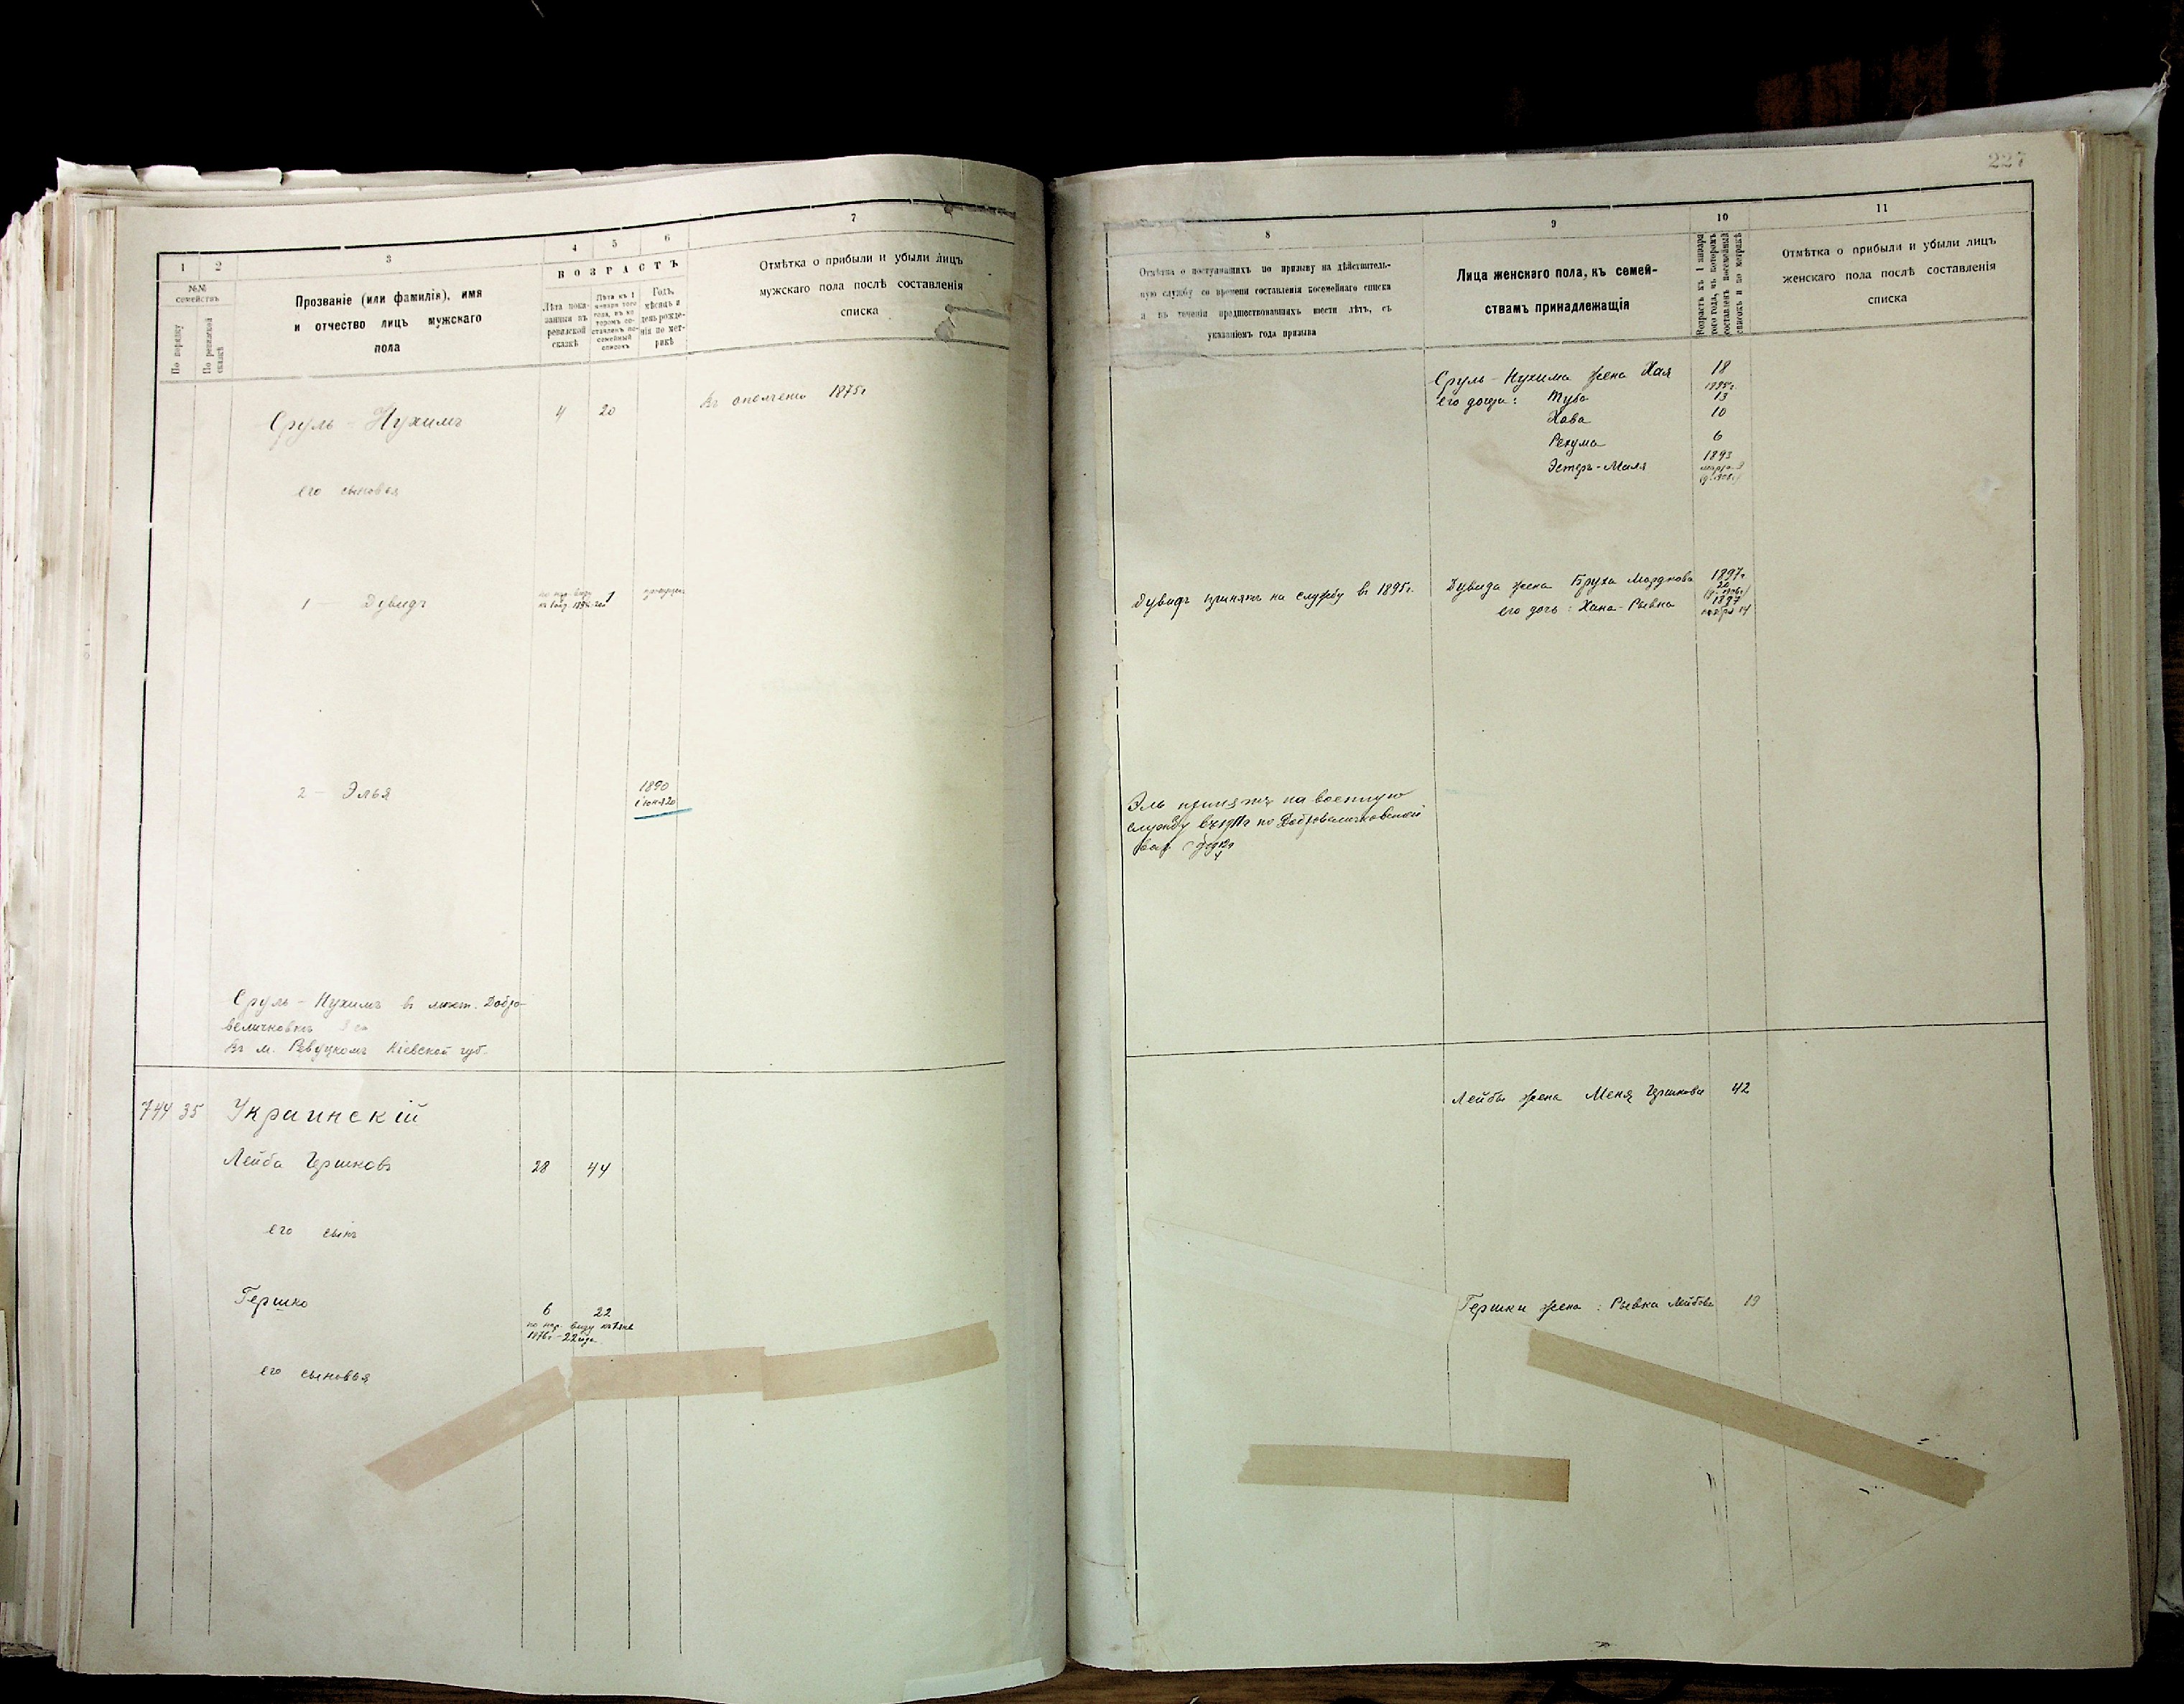 227
1
2
3
4
5
6
7
№№ семействъ
По порядку
По ревизской сказкѣ
Прозваніе (или фамилія), имя
и отчество лицъ мужскаго
пола
ВОЗРАСТЪ
Лѣта пока-
занныя въ
ревизской
сказкѣ
Лѣта къ 1
января того
года, въ ко-
торомъ со-
ставленъ по-
семейный
списокъ
Годъ,
мѣсяцъ и
день рожде-
нія по мет-
рикѣ
Отмѣтка о прибыли и убыли лицъ
мужскаго пола послѣ составленія
списка
Сруль - Нухимъ 4 20 1875г
его сыновья
1 - Дувидъ
2 - Элья 1890
Сруль - Нухимъ в мѣст. Добро-
величковкѣ
въ м. Кіевской губ.
744 35 Украинскій
Лейба Гершковъ 28 44
его сынъ
Гершко 6 22
1876г - 22 года
его сыновья
8
9
10
11
Отмѣтка о поступившихъ по призыву на дѣйствитель-
ную службу со времени составленія посемейнаго списка
и въ теченіи предшествовавшихъ шести лѣтъ, съ
указаніемъ года призыва
Лица женскаго пола, къ семей-
ствамъ принадлежащія
Возрастъ къ 1 января
того года, въ которомъ
составленъ посемейный
списокъ и по метрикѣ
Отмѣтка о прибыли и убыли лицъ
женскаго пола послѣ составленія
списка
Сруль - Нухима жена Хая 18
1895г.
его дочери: Туба 13
Хава 10
Рехума 6
Эстеръ - Маля 1893
Дувидъ принятъ на службу в 1895г.
Дувида жена Бруха Мордкова 1897г
20
его дочь: Хана - Рывка 1897
Эль принятъ на военную
службу по Добровеличковской
Лейбы жена Меня Гершкова 42
Гершки жена: Рывка Лейбова 19